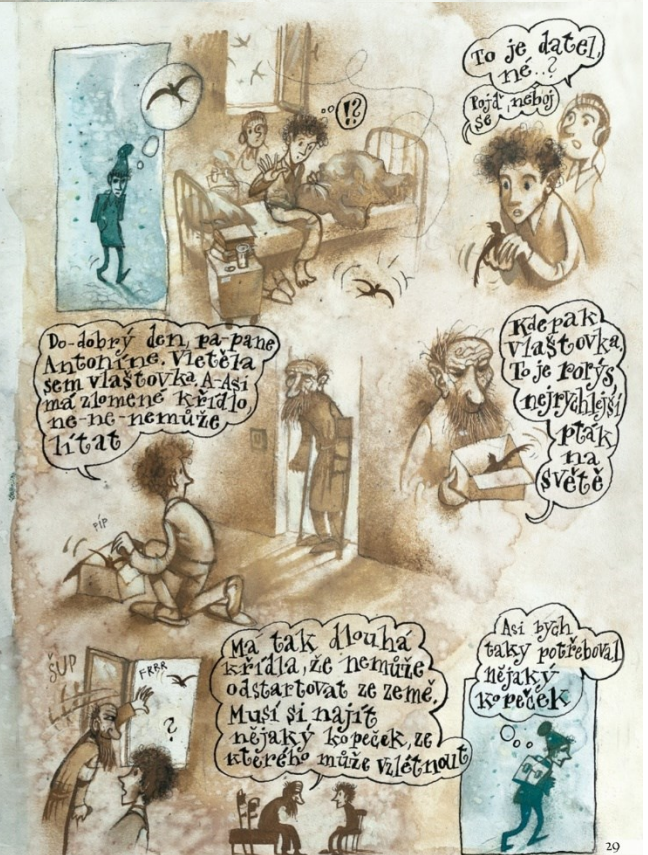 !?
To je datel,
né..?
Pojď, neboj
se
Do-dobrý den, pa-pane
Antoníne. Vletěla
sem vlaštovka. A-Asi
má zlomené křídlo,
ne-ne-nemůže
lítat
PÍP
Kdepak
vlaštovka,
To je rorýs,
nejrychlejší
pták
na
světě
ŠUP
FRRR
?
Má tak dlouhá
křídla, že nemůže
odstartovat ze země.
Musí si najít
nějaký kopeček, ze
kterého může vzlétnout
Asi bych
taky potřeboval
nějaký
kopeček
29